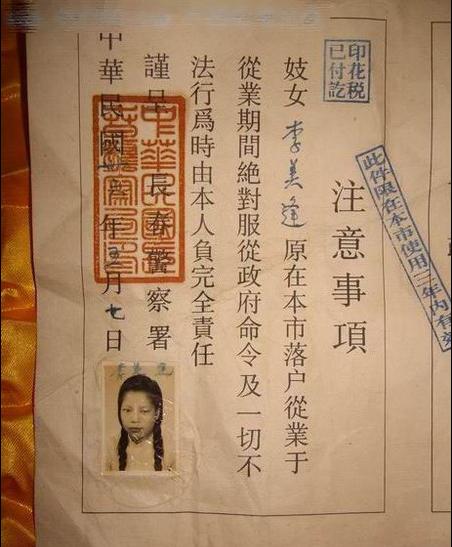 此件限在本市使用二年内有效
印花税
已付訖
注意事項
妓女 李美 原在本市落户從業于
從業期間絕對服從政府命令及一切不
法行爲時由本人負完全責任
謹呈 長春警察署
中華民國 年 月七日